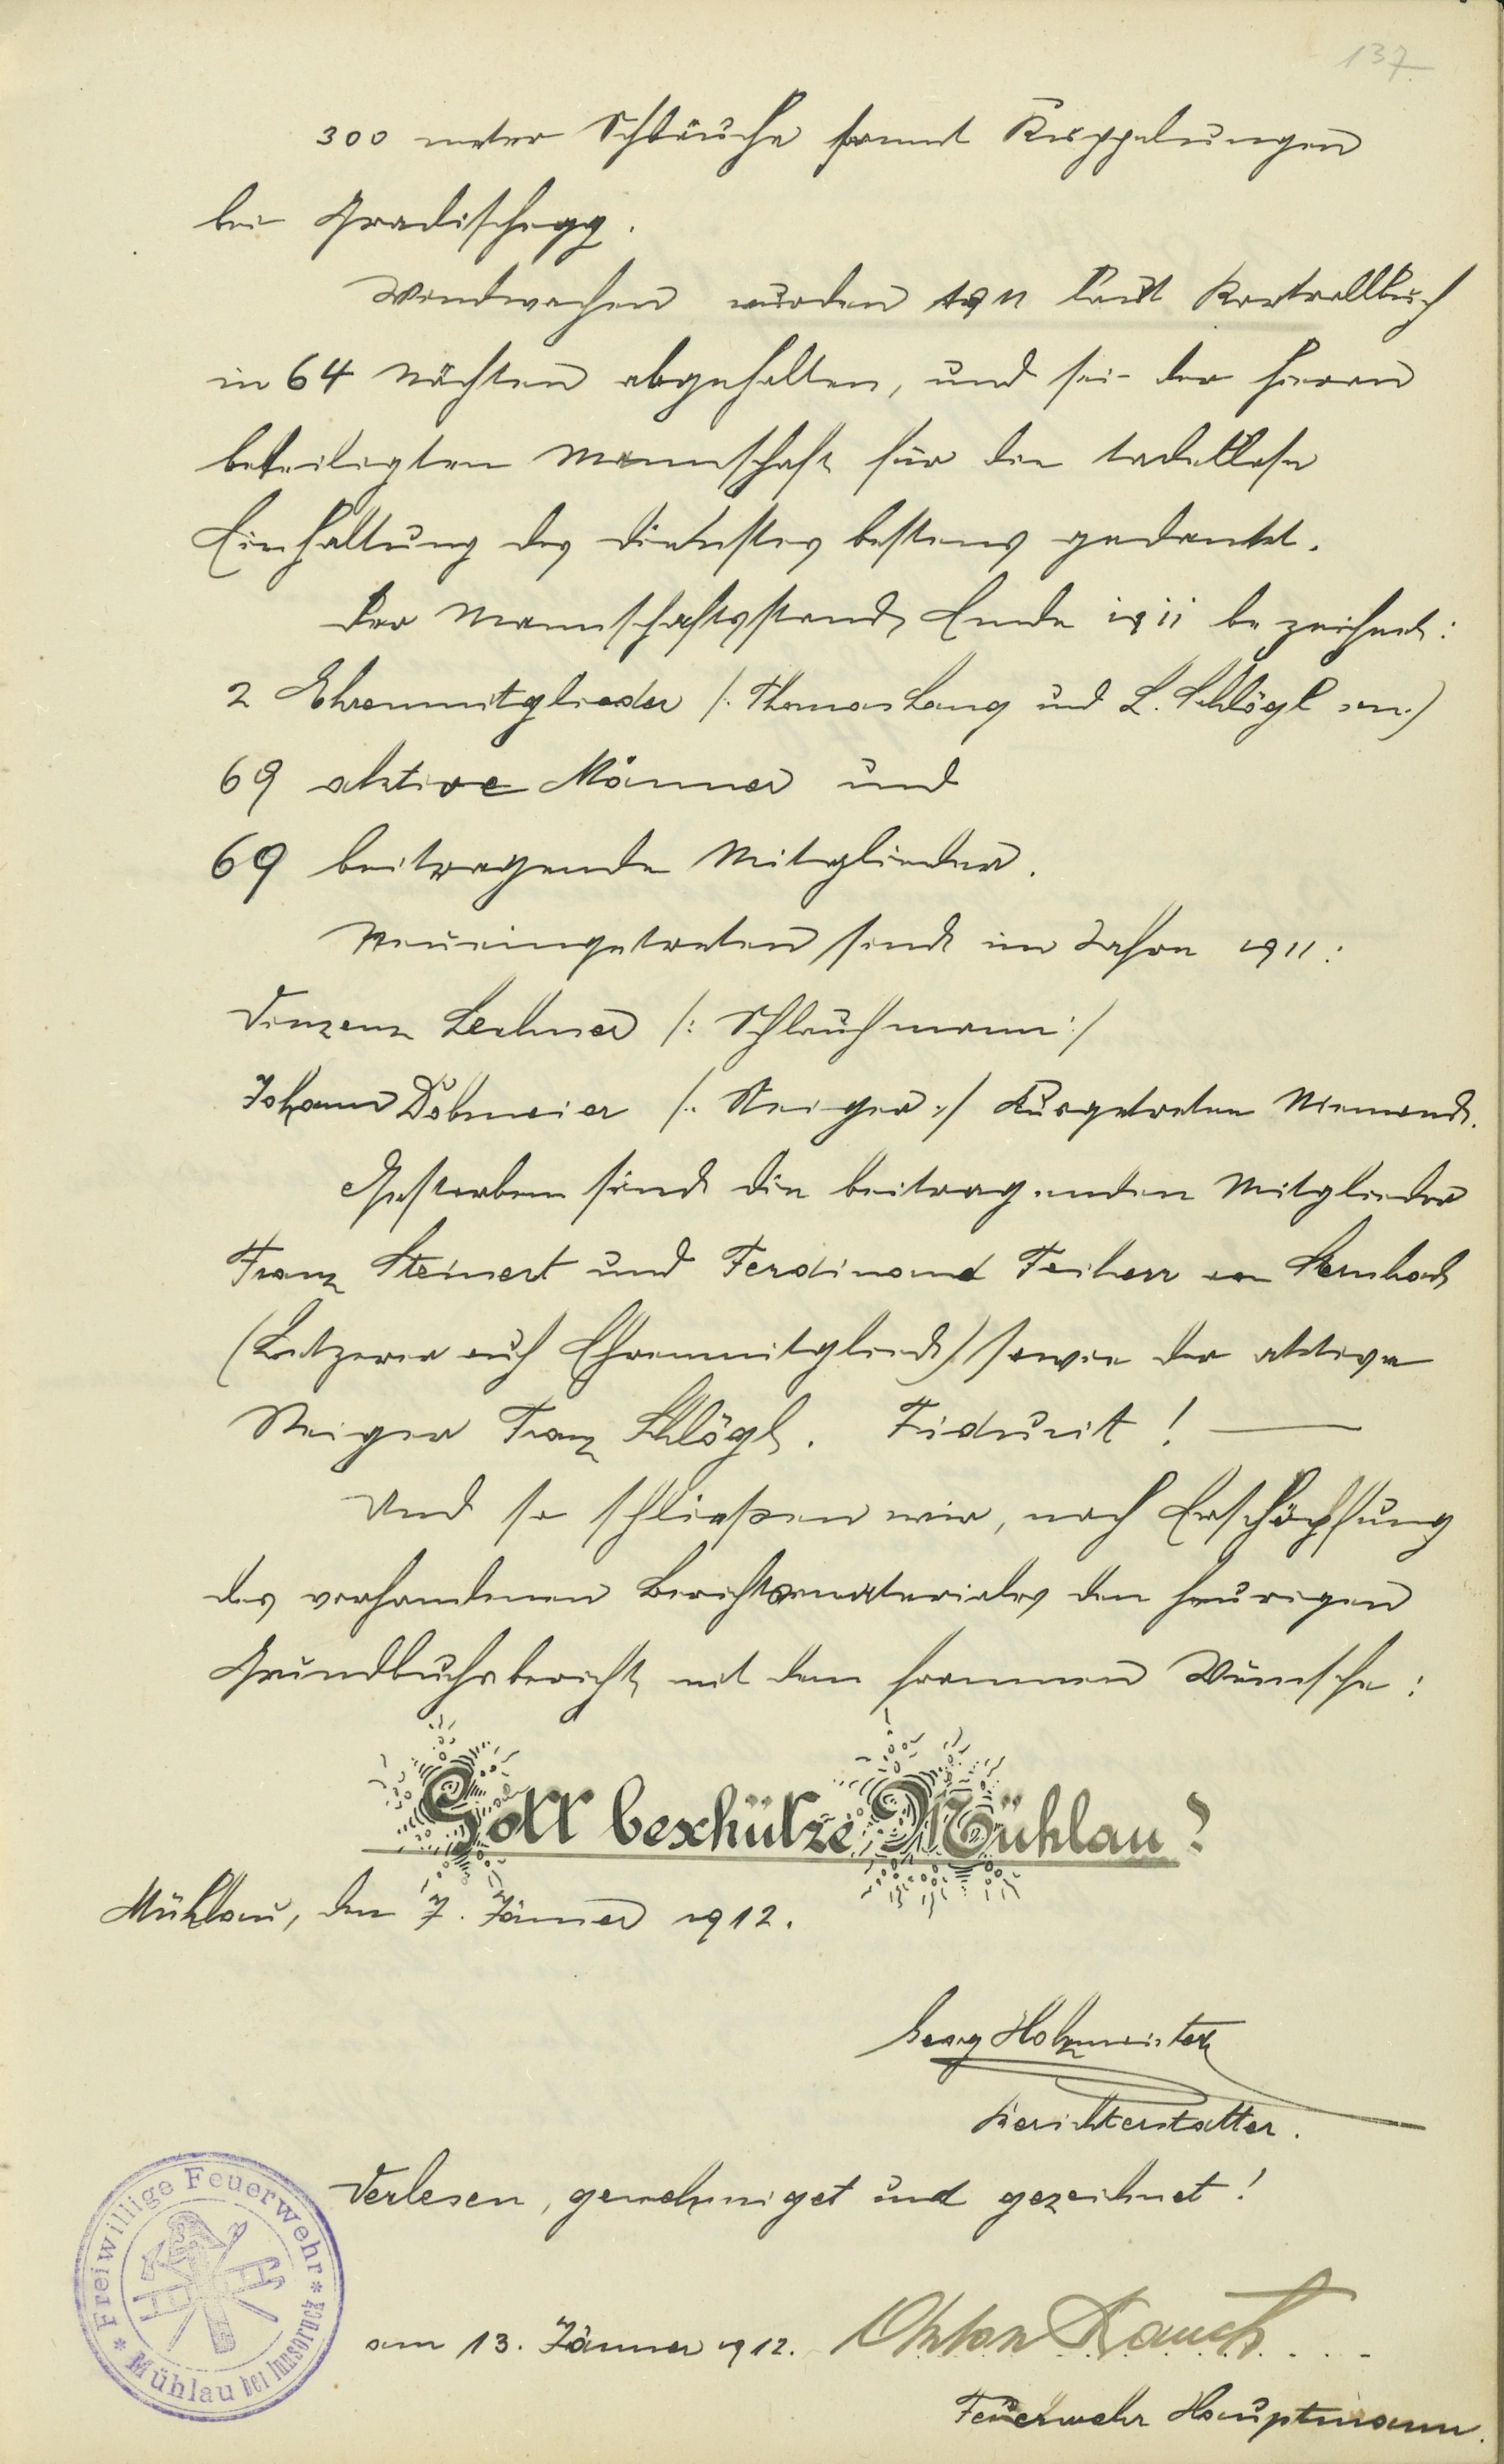 137
300 meter Schläuche sammt Kuppelungen
bei Gradischegg.
Windwachen wurden 1911 laut Kontrollbuch
in 64 Nächten abgehalten, und sei der hieran
beteiligten Mannschaft für die tadellose
Einhaltung des Dienstes bestens gedankt.
Der Mannschaftsstand Ende 1911 bezeichnet:
2 Ehrenmitglieder /: Thomas Lang und L. Schlögl sen.)
69 aktive Männer und
69 beitragende Mitglieder.
Neueingetreten sind im Jahre 1911:
Vinzenz Lechner /: Schlauchmann :/
Johann Döbmeier /: Steiger :/ Ausgetreten Niemand.
Gestorben sind die beitragenden Mitglieder
Franz Steinert und Ferdinand Freiherr von Sternbach
(Letzerer auch Ehrenmitglied) sowie der aktive
Steiger Franz Schlögl. Fiduzit !
Und so schließen wir, nach Erschöpfung
des vorhandenen Berichtsmateriales den heurigen
Grundbuchsbericht mit dem frommen Wunsche:
Gott beschütze Mühlau!
Mühlau, den 7. Jänner 1912.
Georg Holzmeister
Berichterstatter.
Verlesen, genehmiget und gezeichnet!
* Freiwillige Feuerwehr *
Mühlau bei Innsbruck
am 13. Jänner 1912. Anton Rauch
Feuerwehr Hauptmann.